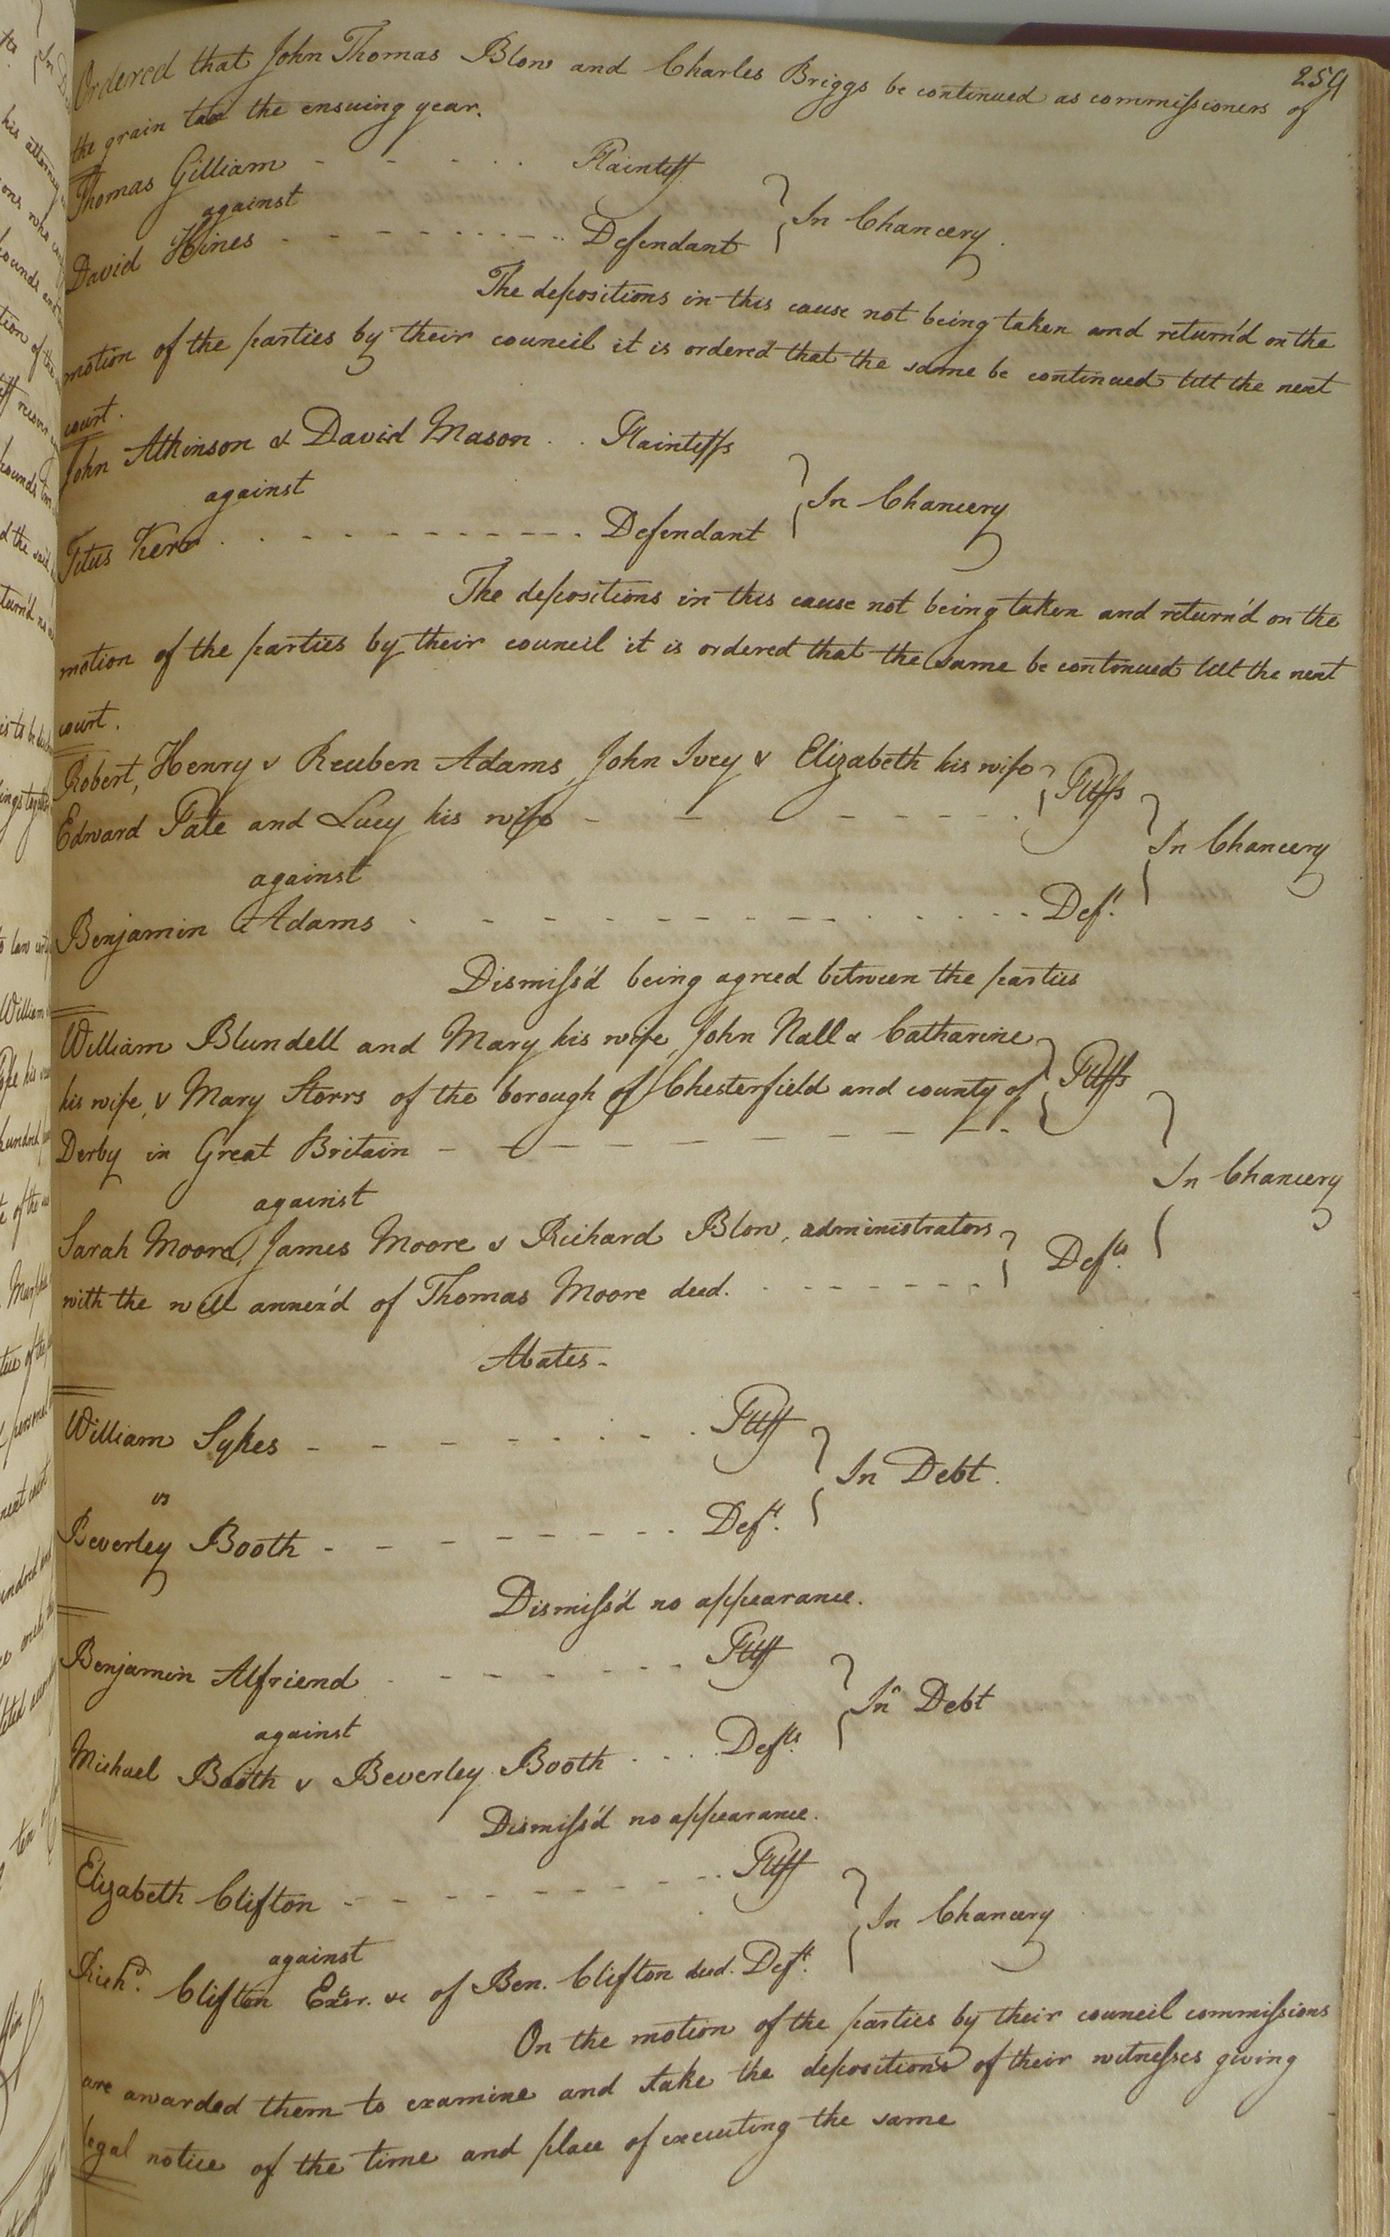 259
Ordered that John Thomas Blow and Charles Briggs be continued as commissioners of
the grain tax the ensuing year.
Thomas Gilliam - - - - - Plaintiff
against
In Chancery.
David Hines - - - - - - - - - Defendant
The depositions in this cause not being taken and return'd on the
motion of the parties by their council it is ordered that the same be continued till the next
court.
John Atkinson & David Mason . . Plaintiffs
against
In Chancery
Titus Kerr . . - - - - - - - - - - Defendant
The depositions in this cause not being taken and return'd on the
motion of the parties by their council it is ordered that the same be continued till the next
court.
Robert, Henry & Reuben Adams, John Ivey & Elizabeth his wife Pltffs
Edward Pate and Lucy his wife - - - - - - -
In Chancery
against
Benjamin Adams - - - - - - - - - - - - Deft.
Dismiss'd being agreed between the parties
William Blundell and Mary his wife, John Nall & Catharine
his wife, & Mary Storrs of the borough of Chesterfield and county of Pltffs
Derby in Great Britain - - - - - - - - -
In Chancery
against
Sarah Moore, James Moore & Richard Blow, administrators
with the will annex'd of Thomas Moore decd. - - - - - - - Defts.
Abates -
William Sykes - - - - - - - - - Pltff
vs
In Debt.
Beverley Booth - - - - - - - - Deft.
Dismiss'd no appearance.
Benjamin Alfriend - - - - - - - Pltff
against
In Debt
Michael Booth & Beverley Booth . . . . Defts.
Dismiss'd no appearance.
Elizabeth Clifton - - - - - - - - - Pltff
against
In Chancery
Richd. Clifton Exor. &c of Ben. Clifton decd. Deft.
On the motion of the parties by their council commissions
are awarded them to examine and take the depositions of their witnesses giving
legal notice of the time and place of executing the same